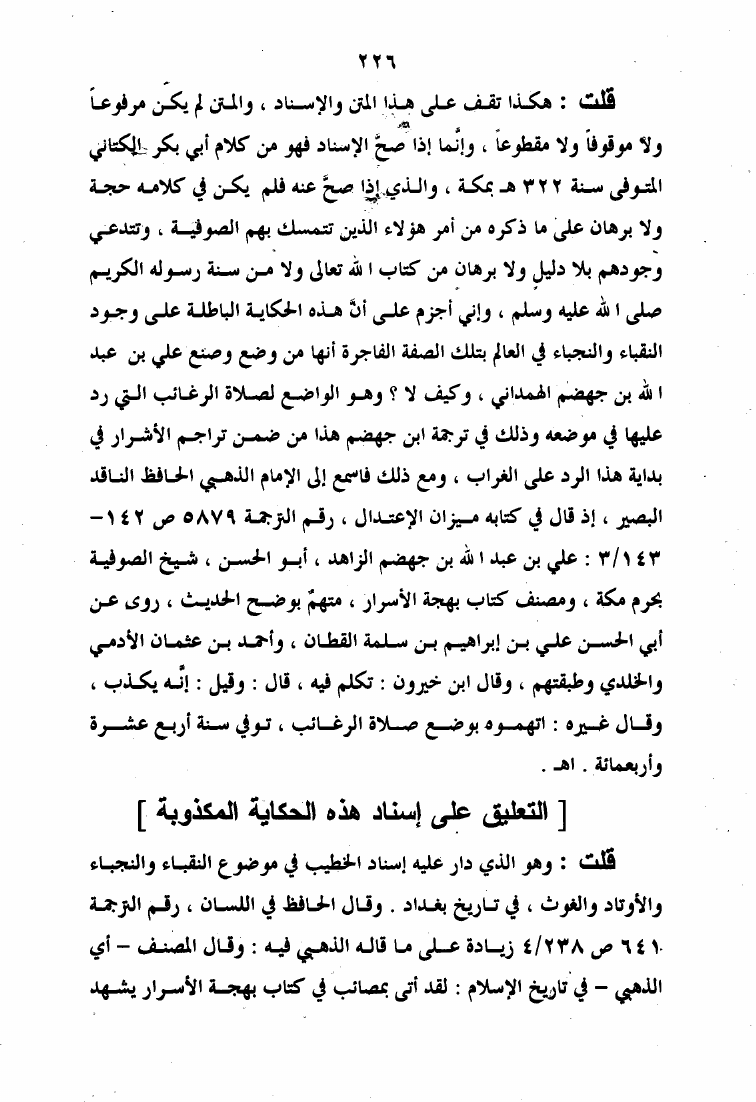 ٢٢٦
قلت : هكذا تقف على هذا المتن والإسناد ، والمتن لم يكن مرفوعاً
ولا موقوفاً ولا مقطوعاً ، وإنَّما إذا صحَّ الإسناد فهو من كلام أبي بكر الكتاني
المتوفى سنة ٣٢٢ هـ بمكة ، والذي إذا صحَّ عنه فلم يكن في كلامه حجة
ولا برهان على ما ذكره من أمر هؤلاء الذين تتمسك بهم الصوفية ، وتتدعي
وجودهم بلا دليل ولا برهان من كتاب ا لله تعالى ولا من سنة رسوله الكريم
صلى ا لله عليه وسلم ، وإني أجزم على أنَّ هذه الحكاية الباطلة على وجود
النقباء والنجباء في العالم بتلك الصفة الفاجرة أنها من وضع وصنع علي بن عبد
ا لله بن جهضم الهمداني ، وكيف لا ؟ وهو الواضع لصلاة الرغائب التي رد
عليها في موضعه وذلك في ترجمة ابن جهضم هذا من ضمن تراجم الأشرار في
بداية هذا الرد على الغراب ، ومع ذلك فاسمع إلى الإمام الذهبي الحافظ الناقد
البصير ، إذ قال في كتابه ميزان الإعتدال ، رقم الترجمة ٥٨٧٩ ص ١٤٢-
٣/١٤٣ : علي بن عبد ا لله بن جهضم الزاهد ، أبو الحسن ، شيخ الصوفية
بحرم مكة ، ومصنف كتاب بهجة الأسرار ، متهمٌ بوضح الحديث ، روى عن
أبي الحسن علي بن إبراهيم بن سلمة القطان ، وأحمد بن عثمان الأدمي
والخلدي وطبقتهم ، وقال ابن خيرون : تكلم فيه ، قال : وقيل : إنَّه يكذب ،
وقال غيره : اتهموه بوضع صلاة الرغائب ، توفي سنة أربع عشرة
وأربعمائة . اهـ .
[ التعليق على إسناد هذه الحكاية المكذوبة ]
قلت : وهو الذي دار عليه إسناد الخطيب في موضوع النقباء والنجباء
والأوتاد والغوث ، في تاريخ بغداد . وقال الحافظ في اللسان ، رقم الترجمة
٦٤١٠ ص ٤/٢٣٨ زيادة على ما قاله الذهبي فيه : وقال المصنف - أي
الذهبي - في تاريخ الإسلام : لقد أتى بمصائب في كتاب بهجة الأسرار يشهد